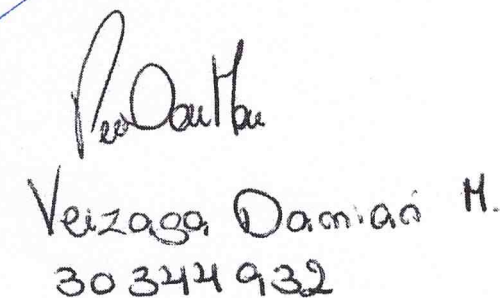 Veizaga Damian M.
30 344 932